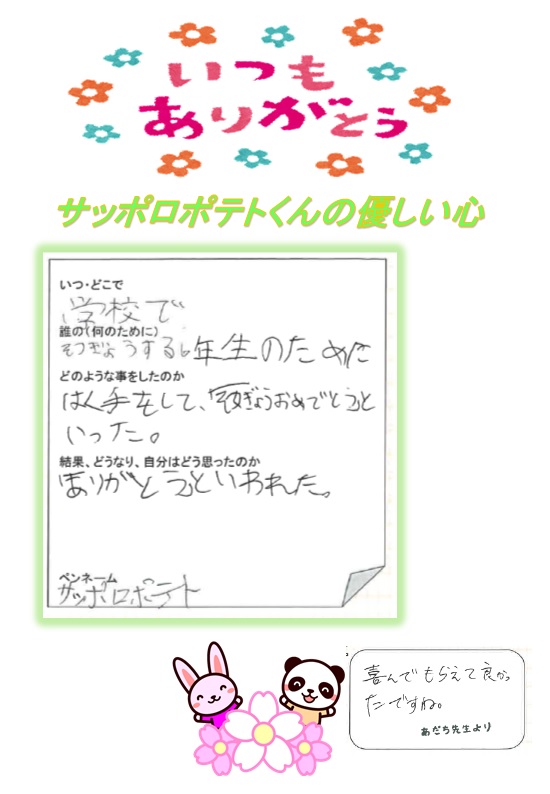 いつも
ありがとう
サッポロポテトくんの優しい心
いつ・どこで
学校で
誰の(何のために)
そつぎょうする6年生のために
どのような事をしたのか
はく手をして、「そつぎょうおめでとう」と
いった。
結果、どうなり、自分はどう思ったのか
「ありがとう」といわれた。
ペンネーム
サッポロポテト
喜んでもらえて良かっ
たですね。
あだち先生より